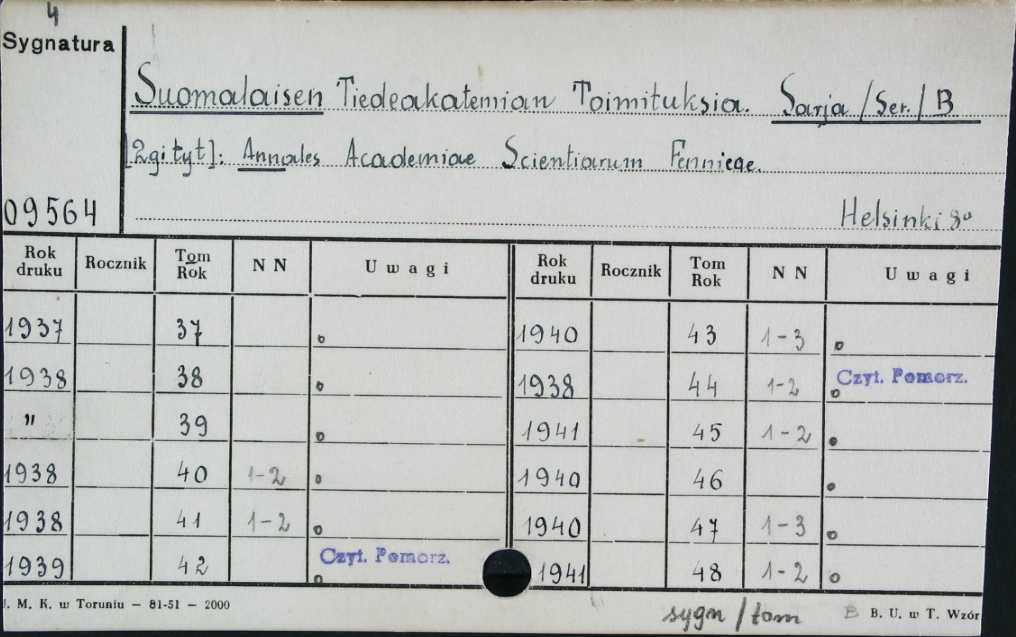 4
Sygnatura
Suomalaisen Tiedeakatemian Toimituksia. Sarja /Ser./ B
[2gi tyt]: Annales Academiae Scientiarum Fennicae.
09564 Helsinki 8°
Rok druku Rocznik Tom Rok N N Uwagi Rok druku Rocznik Tom Rok N N Uwagi
1937 37 1940 43 1-3
1938 38 1938 44 1-2 Czyt. Pomorz.
" 39 1941 45 1-2
1938 40 1-2 1940 46
1938 41 1-2 1940 47 1-3
1939 42 Czyt. Pomorz. 1941 48 1-2
U. M. K. w Toruniu — 81-51 — 2000 sygn/tom B B. U. w T. Wzór